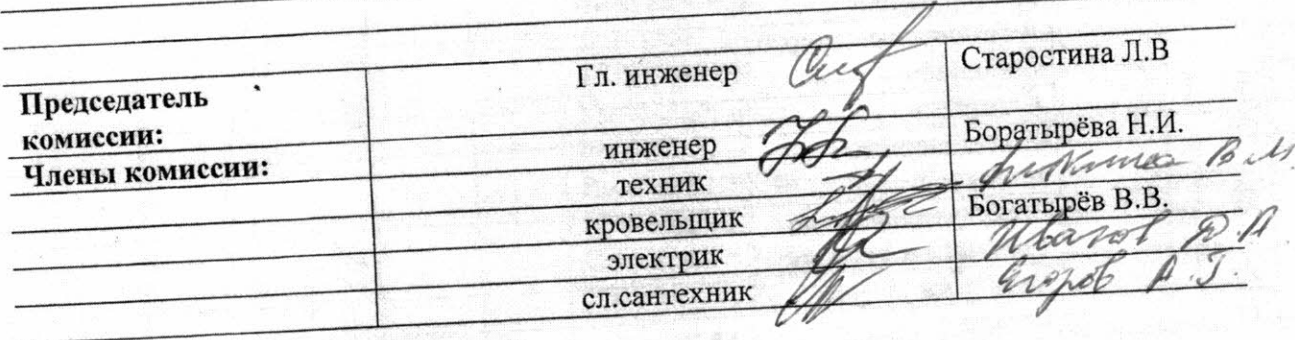 Председатель комиссии: Гл. инженер Старостина Л.В
Члены комиссии: инженер Боратырёва Н.И.
техник В.М.
кровельщик Богатырёв В.В.
электрик Д.А
сл.сантехник Егоров А.Г.